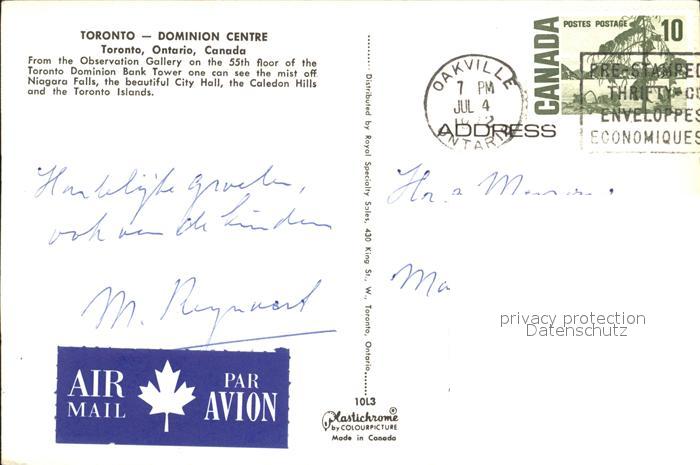 TORONTO — DOMINION CENTRE
Toronto, Ontario, Canada
From the Observation Gallery on the 55th floor of the
Toronto Dominion Bank Tower one can see the mist off
Niagara Falls, the beautiful City Hall, the Caledon Hills
and the Toronto Islands.
Hartelijke groeten,
ook van de kinderen
M. Reynvaert
AIR
MAIL
PAR
AVION
Distributed by Royal Specialty Sales, 430 King St., W., Toronto, Ontario
10L3
Plastichrome®
by COLOURPICTURE
Made in Canada
CANADA
POSTES POSTAGE
10
OAKVILLE
7 PM
JUL 4
ONTARIO
PRE-STAMPED
THRIFTY
ENVELOPPES
ECONOMIQUES
ADDRESS
privacy protection
Datenschutz